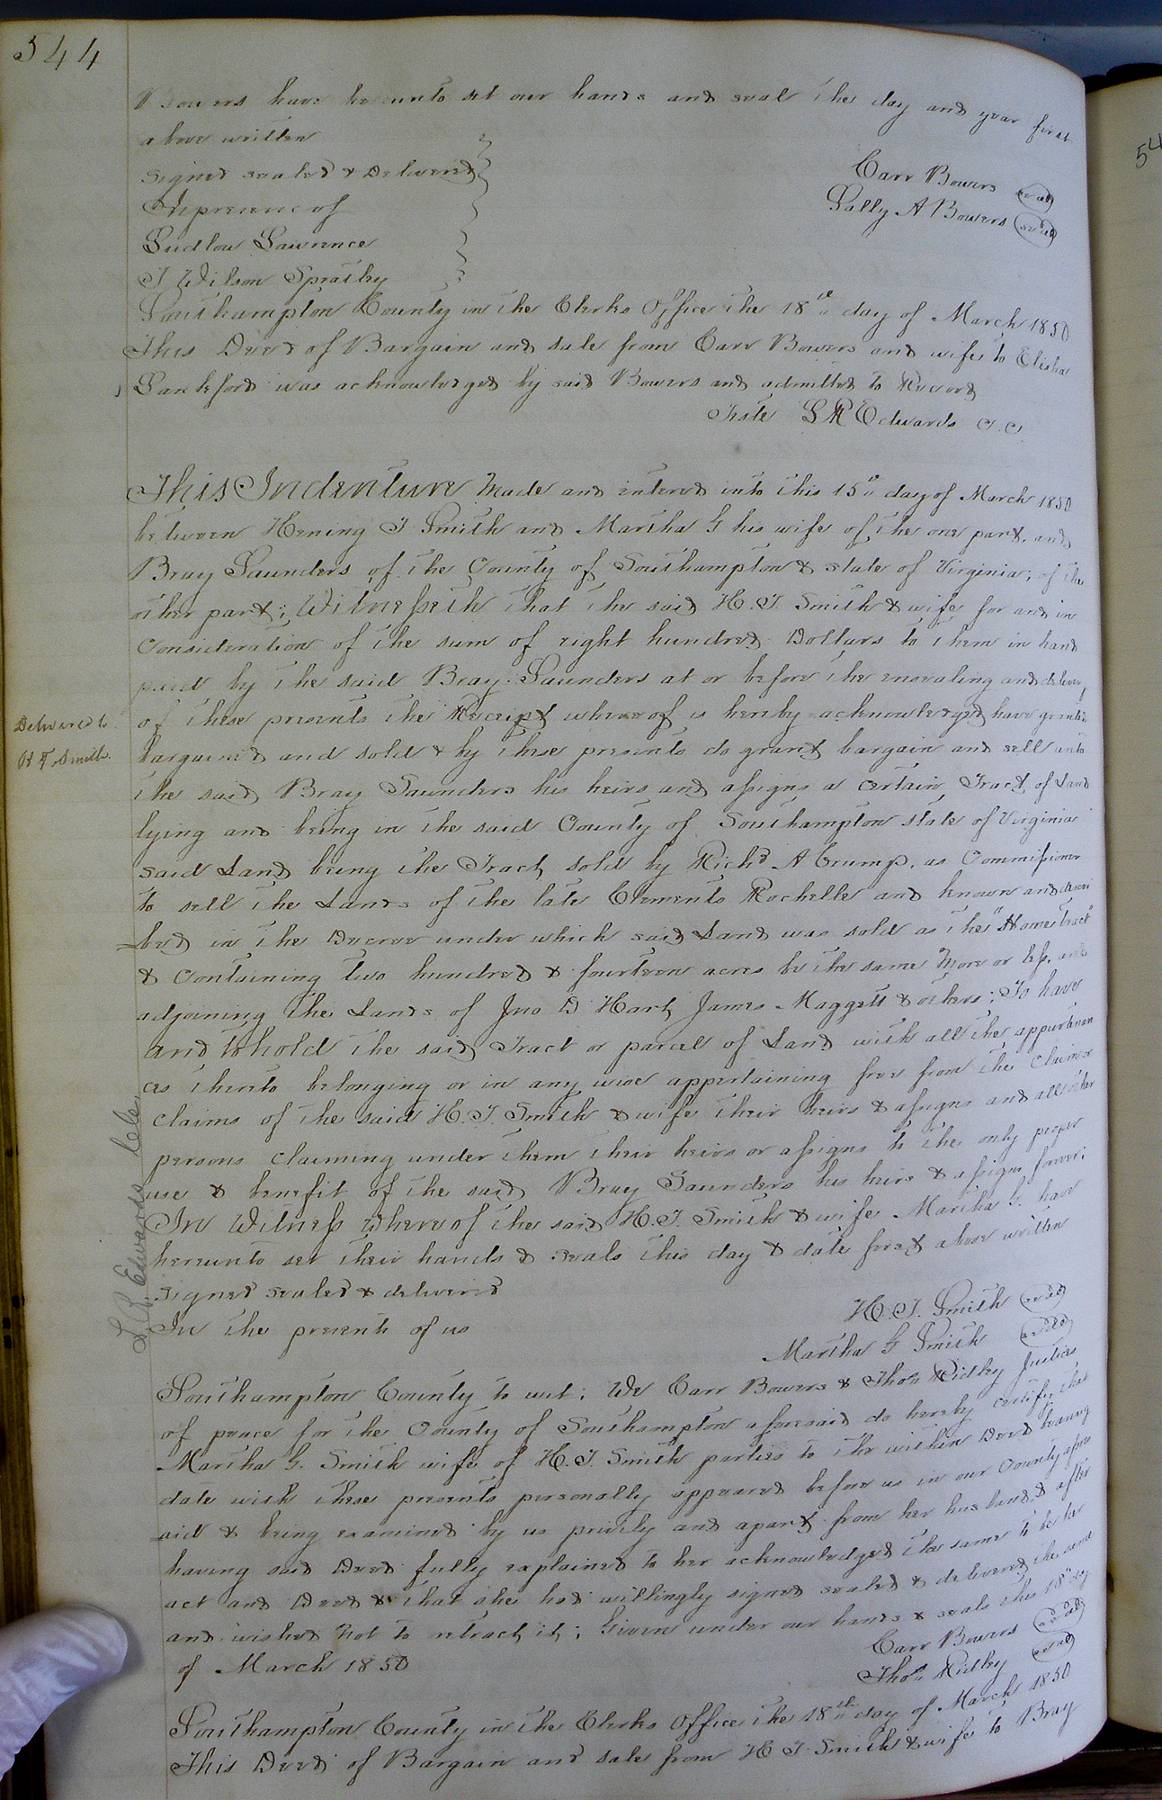 544
Bowers have hereunto set our hands and seal the day and year first
above written
Signed sealed & Delivered
In presence of
Carr Bowers seal
Sally A Bowers seal
Ludlow Lawrence
J Wilson Spratley
Southampton County in the Clerks Office the 18th day of March 1850
This Deed of Bargain and sale from Carr Bowers and wife to Elisha
Lankford was acknowledged by said Bowers and admitted to Record
Teste L R Edwards C.C
This Indenture Made and entered into this 15th day of March 1850
between Hening T Smith and Martha G his wife of the one part, and
Bray Saunders of the County of Southampton & state of Virginia, of the
other part; Witnesseth that the said H. T. Smith & wife for and in
Consideration of the sum of eight hundred Dollars to them in hand
paid by the said Bray Saunders at or before the ensealing and delivery
of these presents the Receipt whereof is hereby acknowledged have granted
bargained and sold & by these presents do grant bargain and sell unto
the said Bray Saunders his heirs and assigns a certain Tract of Land
lying and being in the said County of Southampton state of Virginia
said Land being the Tract sold by Richd A Crump, as Commissioner
to sell the Lands of the late Clements Rochelle and known and descri
bed in the Decree under which said Land was sold as the "Home Tract"
& Containing two hundred & fourteen acres be the same More or less, and
adjoining the Lands of Jno D Hart, James Maggett & others; To have
and to hold the said Tract or parcel of Land with all the appurtenan
ces thereto belonging or in any wise appertaining free from the Claim or
claims of the said H. T. Smith & wife their heirs & assigns and all other
persons claiming under them their heirs or assigns to the only proper
use & benefit of the said Bray Saunders his heirs & assigns forever:
In Witness Whereof the said H. T. Smith & wife Martha G. have
hereunto set their hands & seals this day & date first above written
Signed sealed & delivered
In the presents of us
H. T. Smith seal
Martha G Smith seal
Delivered to
H T Smith.
L R Edwards Clk
Southampton County to wit; We Carr Bowers & Thos Ridley Justices
of peace for the County of Southampton aforesaid do hereby certify that
Martha G. Smith wife of H. T. Smith parties to the within Deed bearing
date with these presents personally appeared before us in our County afores
aid & being examined by us privily and apart from her husband, & after
having said Deed fully explained to her acknowledged the same to be her
act and Deed & that she had willingly signed sealed & delivered the same
and wished not to retract it; Given under our hands & seals this 18th day
of March 1850
Carr Bowers seal
Thos Ridley seal
Southampton County in the Clerks Office the 18th day of March 1850
This Deed of Bargain and sale from H T Smith & wife to Bray
54